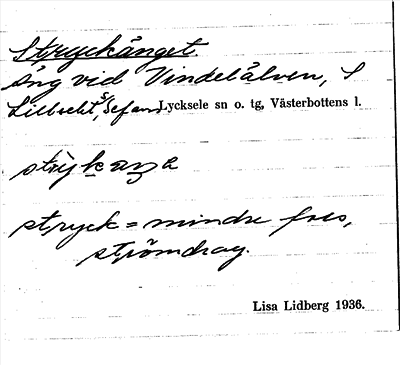 Stryckänget.
äng vid Vindelälven, S
Lycksele sn o. tg, Västerbottens l.
stryck = mindre fors,
strömdrag.
Lisa Lidberg 1936.